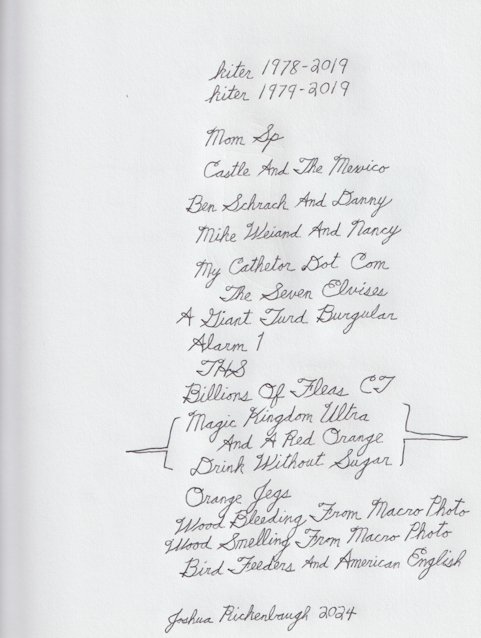 hiter 1978-2019
hiter 1979-2019
Mom Sp
Castle And The Mexico
Ben Schrach And Danny
Mike Weiand And Nancy
My Cathetor Dot Com
The Seven Elvises
A Giant Turd Burgular
Alarm 1
THS
Billions Of Fleas CT
Magic Kingdom Ultra
And A Red Orange
Drink Without Sugar
Orange Jegs
Wood Bleeding From Macro Photo
Wood Smelling From Macro Photo
Bird Feeders And American English
Joshua Richenbaugh 2024